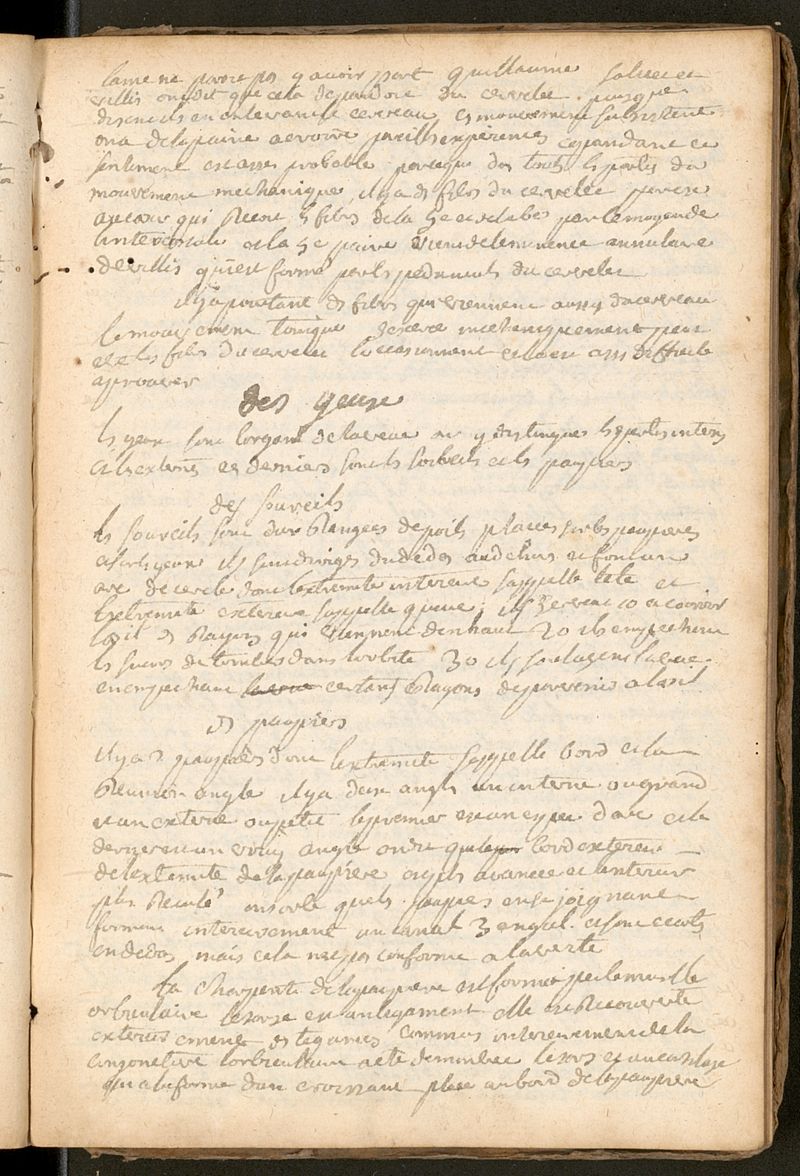 lame ne paroc pas y avoir part guillaume
villis on dit que cela dependoit du cervelet puisque
en enlevant le cerveau ces mouvemens subsistent
on a de la peine a croire pareilles experiences cependant ce
sentiment est asses probable parceque dans toutes les parties du
mouvement mechanique il y a des filets du cervelet
au coeur qui recoit des filets de la 5e et de la 8e par le moyen de
lintercostale et la 5e paire vient de leminence annulaire
de villis qui est formé par les peduncules du cervelet
il y a pourtant des filets qui viennent aussy du cerveau
le mouvement tonique sexerce mechaniquement
les filets du cervelet loccasionnent et cela est asses difficile
aprouver
des yeux
les yeux sont lorgane de la veue on y distingue les parties internes
et les externes ces derniers sont les sorcils et les paupiers
des sourcils
les sourcils sont deux rangees de poils places sur les paupieres
et sur les yeux ils sont diriges du dedans au dehors et font un
arc de cercle dont lextremite interieure sappelle tete et
lextremite exterieure sappelle queue ils servent 1o a couvrir
loeil des rayons qui viennent denhaut 2o ils empechent
les sueurs de tomber dans lorbite 3o ils soulagent la veue
en empechant certains rayons de parvenir a loeil
des paupiers
il y a 2 paupieres dont lextremite sappelle bord et la
reunion angle il y a deux angles un interne ou grand
et un externe ou petit le premier est une espece darc et le
dernier est un vray angle on dit que bord exterieur
de lextremite de la paupiere est plus avancée et linterieur
plus reculé ensorte que les paupieres en se joignant
forment interieurement un canal 3engul. et sont ecartés
en dedans mais cela nest pas conforme a la verité
la charpente de la paupiere est formée par le muscle
orbiculaire le tarse et un ligament elle est recouverte
exterieurement des tegumens communs interieurement de la
conjonctive lorbiculaire a été demontré le tarse est un cartilage
qui a la forme dun croissant placé au bord de la paupiere